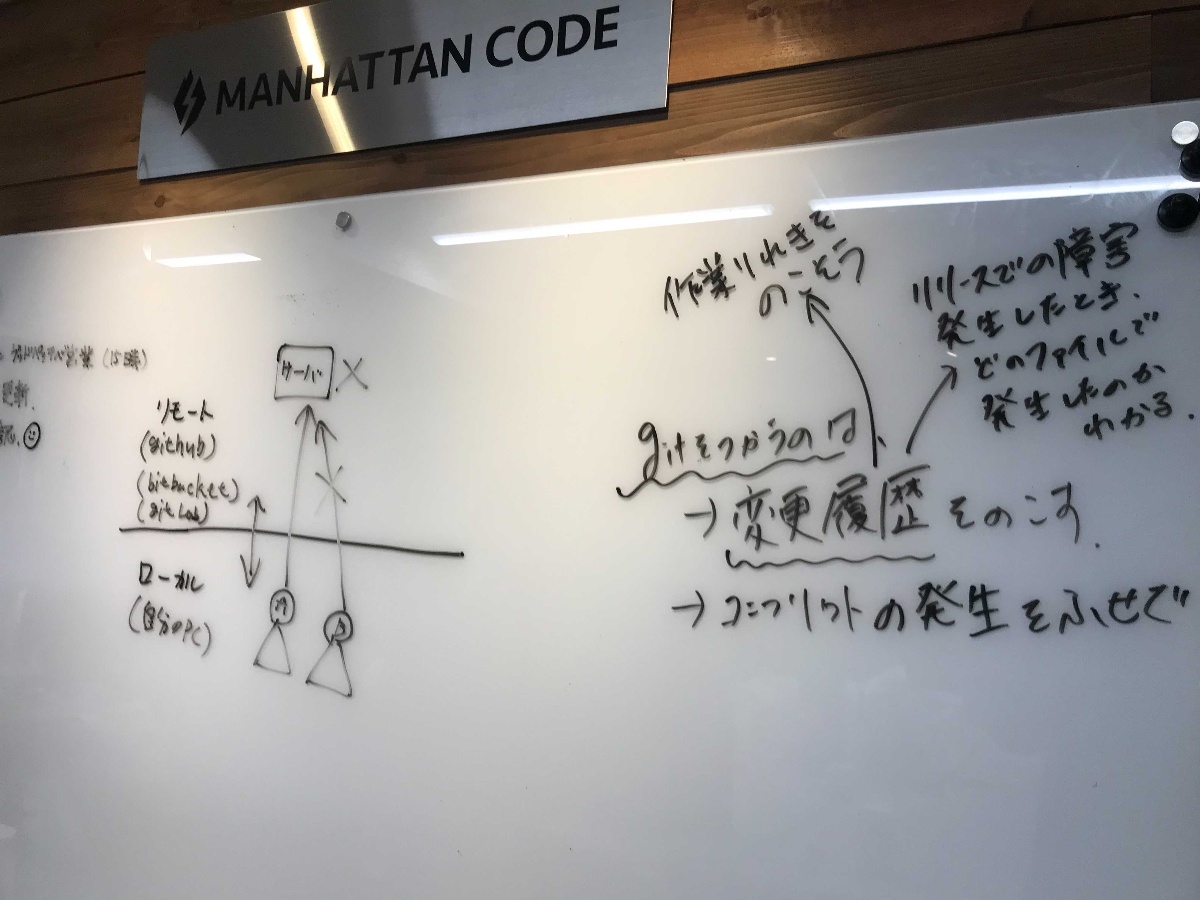 MANHATTAN CODE
営業(15時)
更新.
サーバ
リモート
(github)
(bitbucket)
(gitLab)
ローカル
(自分のPC)
作業りれきを
のこそう
リリースでの障害
発生したとき.
どのファイルで
発生したのか
わかる.
gitをつかうのは
→ 変更履歴 をのこす.
→ コンフリクトの発生をふせぐ